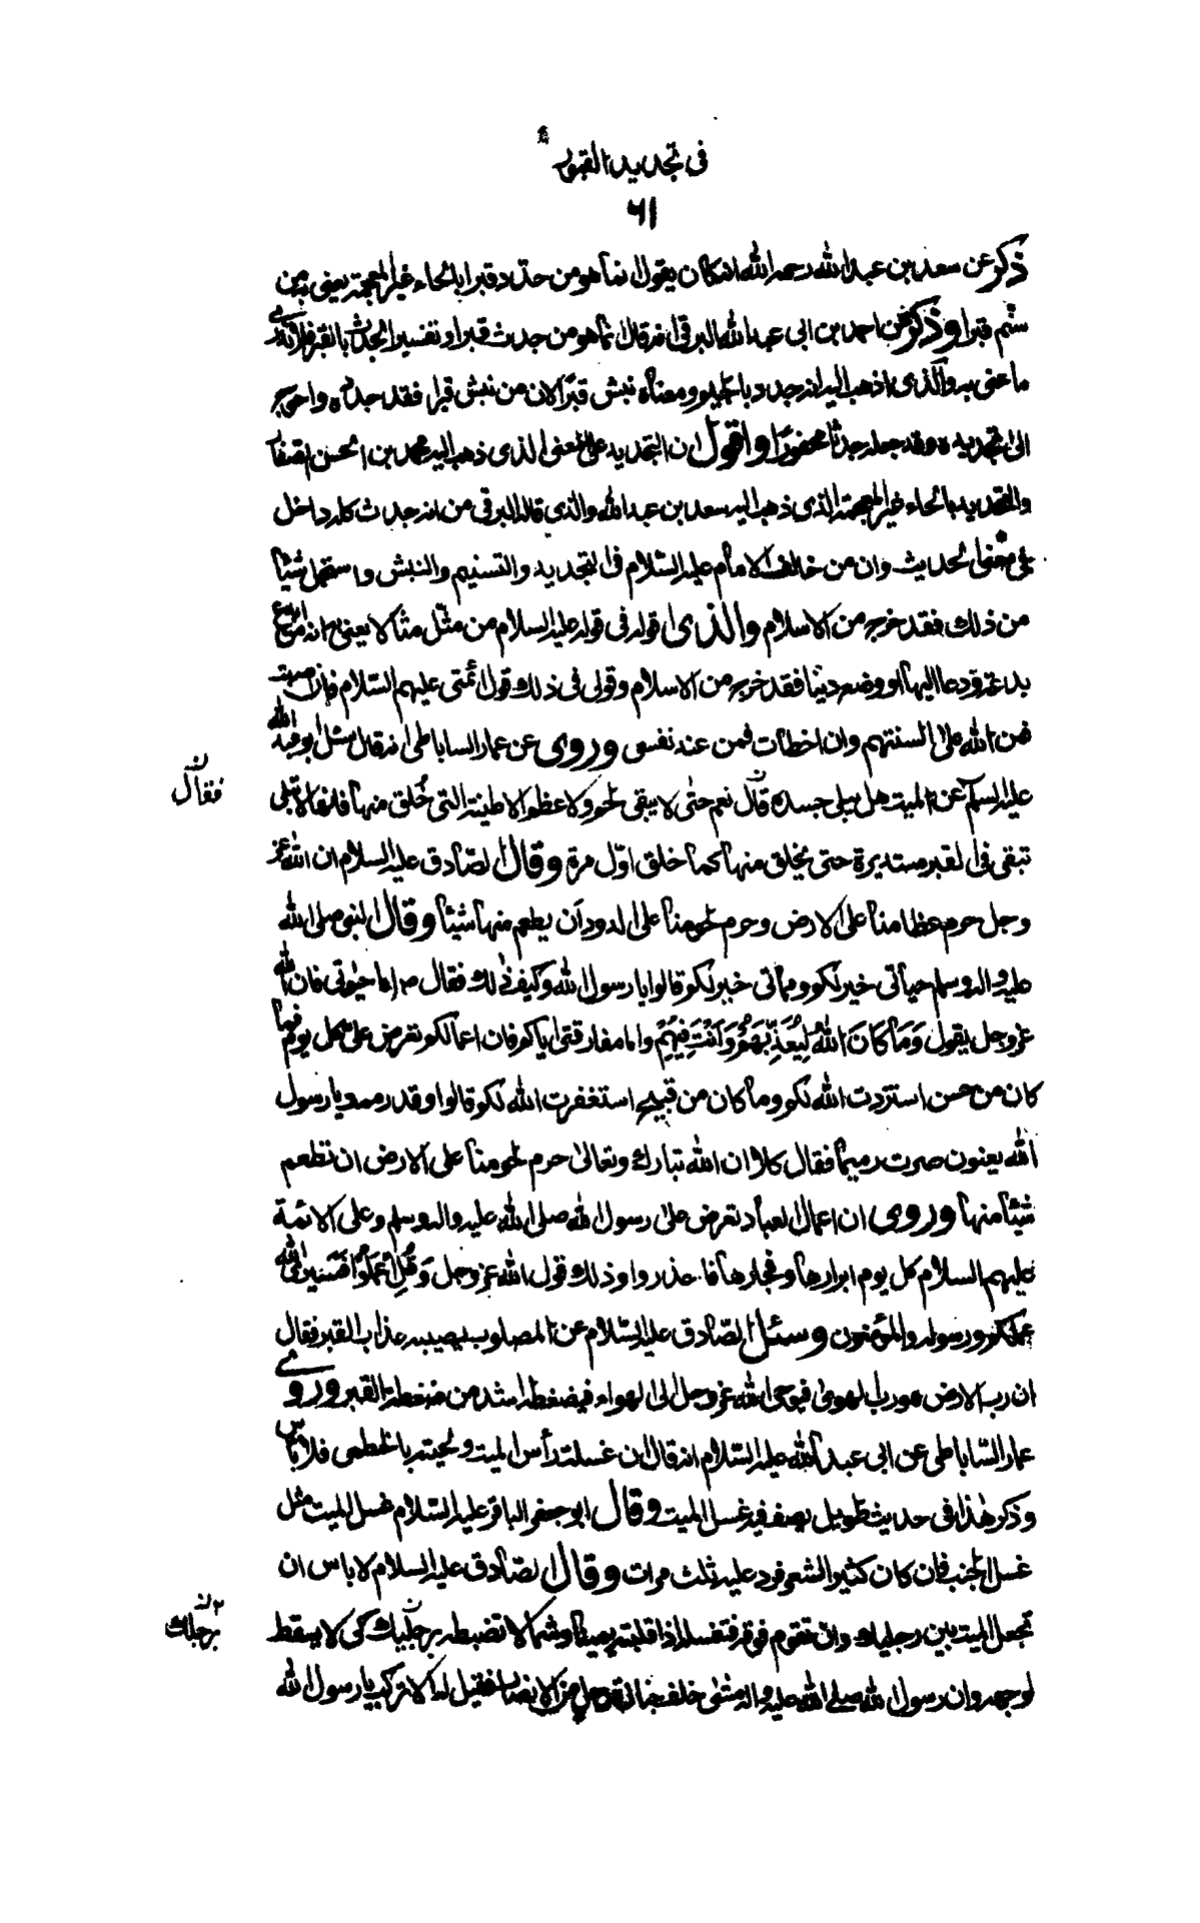 فى تجديد القبور
٦١
ذكر عن سعد بن عبد الله رحمه الله انه كان يقول انما هو من حدد قبرا بالحاء غير المعجمة يعنى به من
سنم قبرا وذكر عن احمد بن ابى عبد الله البرقى انه قال انما هو من جدث قبرا وتفسير الجدث بالقبر فلا ندرى
ما عنى به والذى اذهب اليه انه جدد بالجيم ومعناه نبش قبرا لان من نبش قبرا فقد جدده واحوج
الى تجديده وقد جعله جدثا محفورا واقول ان التجديد على المعنى الذى ذهب اليه محمد بن الحسن الصفار
والتحديد بالحاء غير المعجمة الذى ذهب اليه سعد بن عبد الله والذى قاله البرقى من انه جدث كله داخل
فى معنى الحديث وان من خالف الامام عليه السلام فى التجديد والتسنيم والنبش واستحل شيئا
من ذلك فقد خرج من الاسلام والذى اقوله فى قوله عليه السلام من مثل مثالا يعنى به انه من ابدع
بدعة ودعا اليها او وضع دينا فقد خرج من الاسلام وقولى فى ذلك قول ائمتى عليهم السلام فان اصبت
فمن الله على السنتهم وان اخطات فمن عند نفسى وروى عن عمار الساباطى انه قال سئل ابو عبد الله
عليه السلام عن الميت هل يبلى جسده قال نعم حتى لا يبقى لحم ولا عظم الا طينته التى خلق منها فانها لا تبلى
فقال ن
تبقى فى القبر مستديرة حتى يخلق منها كما خلق اول مرة وقال الصادق عليه السلام ان الله عز
وجل حرم عظامنا على الارض وحرم لحومنا على الدود ان يطعم منها شيئا وقال النبى صلى الله
عليه واله وسلم حياتى خير لكم ومماتى خير لكم قالوا يا رسول الله وكيف ذلك فقال ص اما حيوتى فان الله
عز وجل يقول وَمَا كَانَ اللهُ لِيُعَذِّبَهُمْ وَاَنْتَ فِيهِمْ واما مفارقتى اياكم فان اعمالكم تعرض على كل يوم فما
كان من حسن استزدت الله لكم وما كان من قبيح استغفرت الله لكم قالوا وقد رممت يا رسول
الله يعنون صرت رميما فقال كلا ان الله تبارك وتعالى حرم لحومنا على الارض ان تطعم
شيئا منها وروى ان اعمال العباد تعرض على رسول الله صلى الله عليه واله وسلم وعلى الائمة
عليهم السلام كل يوم ابرارها وفجارها فاحذروا وذلك قول الله عز وجل وَقُلِ اعْمَلُوا فَسَيَرَى الله
عملكم ورسوله والمؤمنون وسئل الصادق عليه السلام عن المصلوب يصيبه عذاب القبر فقال
ان رب الارض هو رب الهواء فيوحى الله عز وجل الى الهواء فيضغطه اشد من ضغطة القبر وروى
عمار الساباطى عن ابى عبد الله عليه السلام انه قال ان غسلت رأس الميت ولحيته بالخطمى فلا باس
وذكر هذا فى حديث طويل يصف فيه غسل الميت وقال ابو جعفر الباقر عليه السلام غسل الميت مثل
غسل الجنب فان كان كثير الشعر فرد عليه ثلث مرات وقال الصادق عليه السلام لا باس ان
تجعل الميت بين رجليك وان تقوم فوقه فتغسله اذا قلبته يمينا وشمالا تضبطه برجليك كى لا يسقط
برجلك ن
لوجهه وان رسول الله صلى الله عليه واله مشى خلف جنازة رجل من الانصار فقيل له الا تركب يا رسول الله